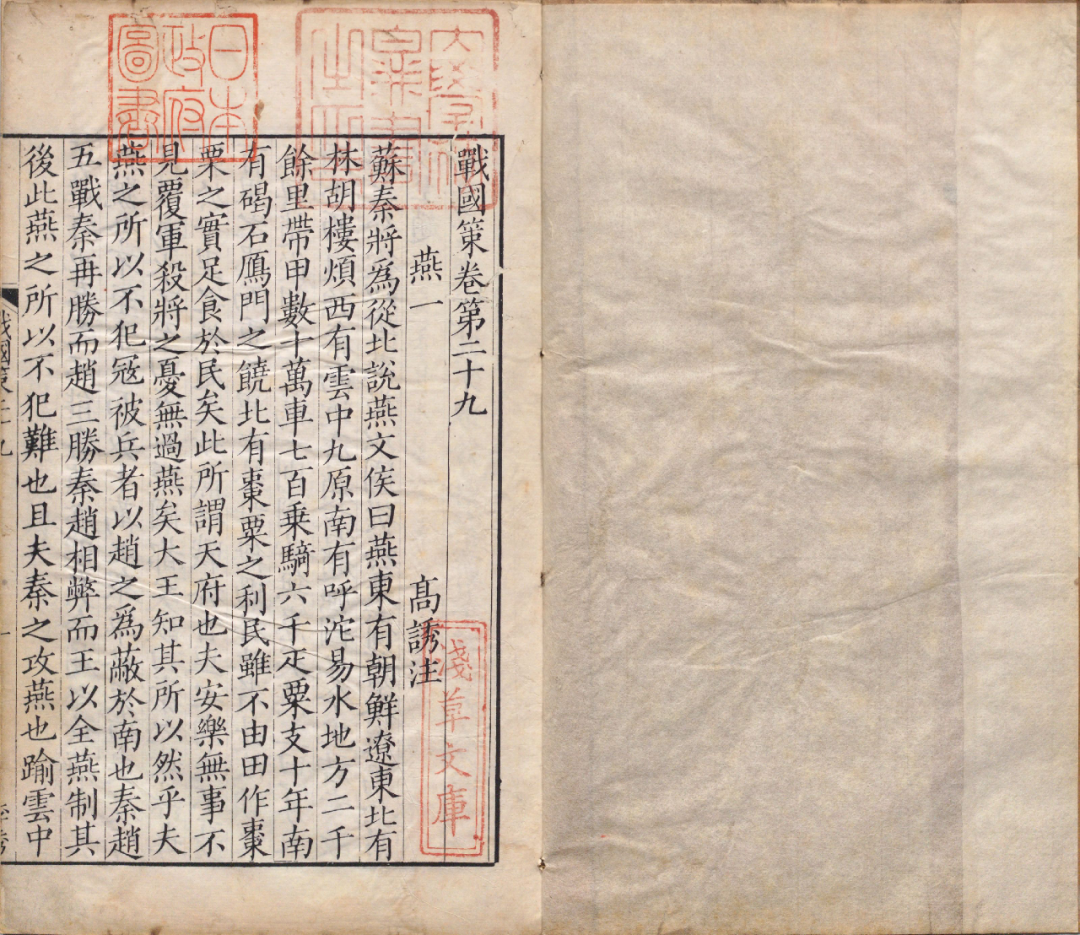 戰國策卷第二十九
燕一 高誘注
蘇秦將爲從北說燕文侯曰燕東有朝鮮遼東北有
林胡樓煩西有雲中九原南有呼沱易水地方二千
餘里帶甲數十萬車七百乗騎六千疋粟支十年南
有碣石鴈門之饒北有棗粟之利民雖不由田作棗
栗之實足食於民矣此所謂天府也夫安樂無事不
見覆軍殺將之憂無過燕矣大王知其所以然乎夫
燕之所以不犯冦被兵者以趙之爲蔽於南也秦趙
五戰秦再勝而趙三勝秦趙相弊而王以全燕制其
後此燕之所以不犯難也且夫秦之攻燕也踰雲中
戰國策二十九
一
日本
政府
圖書
淺草文庫